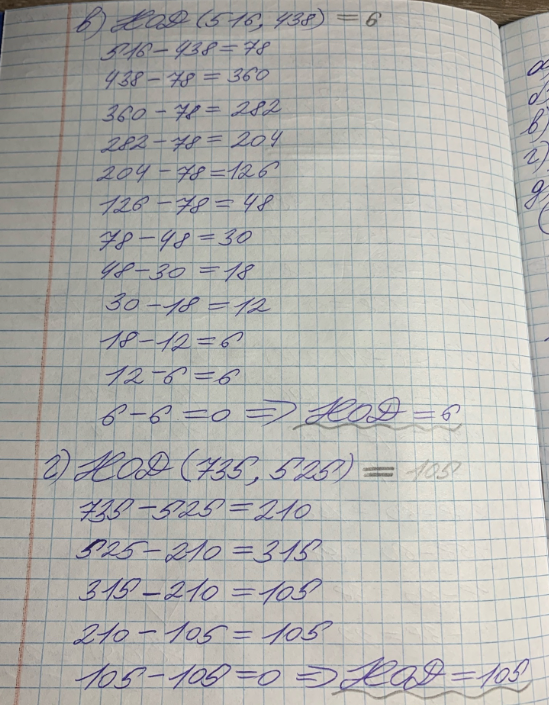 в) НОД (516, 438) = 6
516 - 438 = 78
438 - 78 = 360
360 - 78 = 282
282 - 78 = 204
204 - 78 = 126
126 - 78 = 48
78 - 48 = 30
48 - 30 = 18
30 - 18 = 12
18 - 12 = 6
12 - 6 = 6
6 - 6 = 0 => НОД = 6
г) НОД (735, 525) = 105
735 - 525 = 210
525 - 210 = 315
315 - 210 = 105
210 - 105 = 105
105 - 105 = 0 => НОД = 105
в)
г)